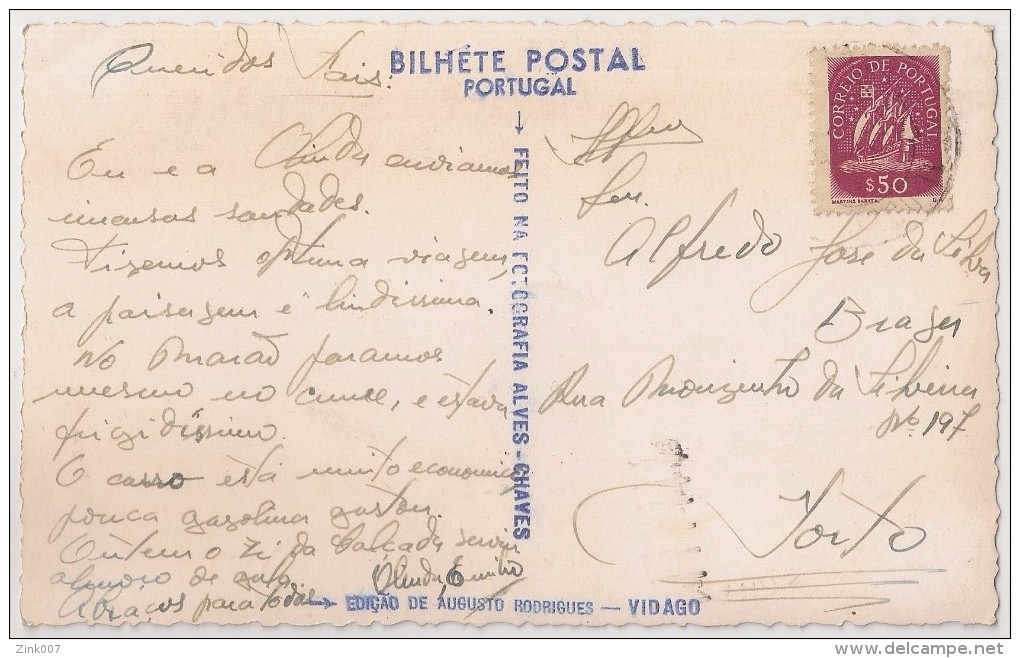 Queridos Pais.
BILHETE POSTAL
PORTUGAL
Eu e a Olinda enviamos
imensas saudades.
Fizemos optima viagem,
a paisagem é lindissima.
No Marão paramos
mesmo no cume, e estava
frigidissimo.
O carro está muito economico,
pouca gazolina gastou.
Ontem o Zé da Calçada serviu
almoço de gala.
Abraços para todos
Olinda, Emilio
→ FEITO NA FOTOGRAFIA ALVES - CHAVES
→ EDIÇÃO DE AUGUSTO RODRIGUES — VIDAGO
CORREIO DE PORTUGAL
$50
MARTINS BARATA
Alfredo José da Silva
Braga
Rua Monzinho da Silveira
Nº 197
Porto
Zink007
delcampe.net